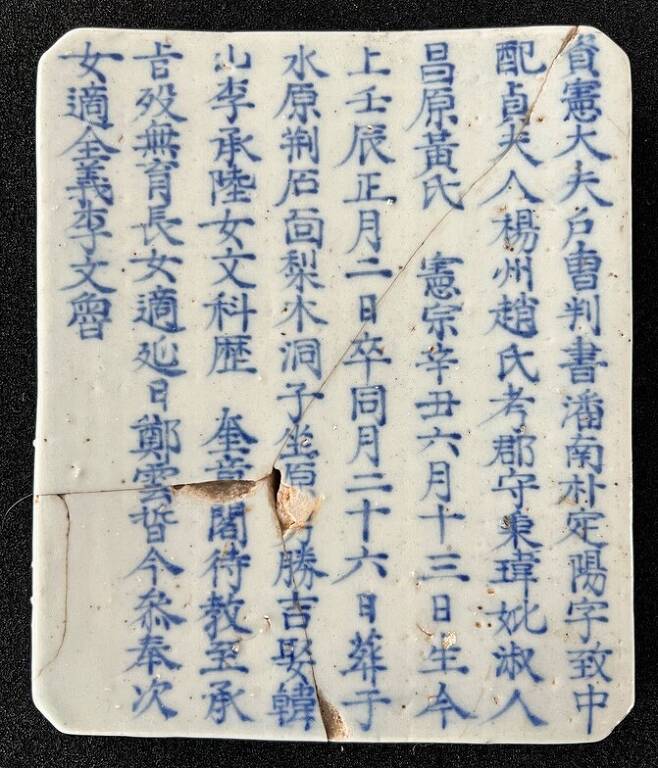 資憲大夫戶曺判書潘南朴定陽字致中
配貞夫人楊州趙氏考郡守秉瑋妣淑人
昌原黃氏 憲宗辛丑六月十三日生今
上壬辰正月二日卒同月二十六日葬于
水原荊石面梨木洞子坐原男勝吉娶韓
山李承陸女文科歷 奎章閣待教至承
旨歿無育長女適延日鄭雲晳今叅奉次
女適全義李文魯